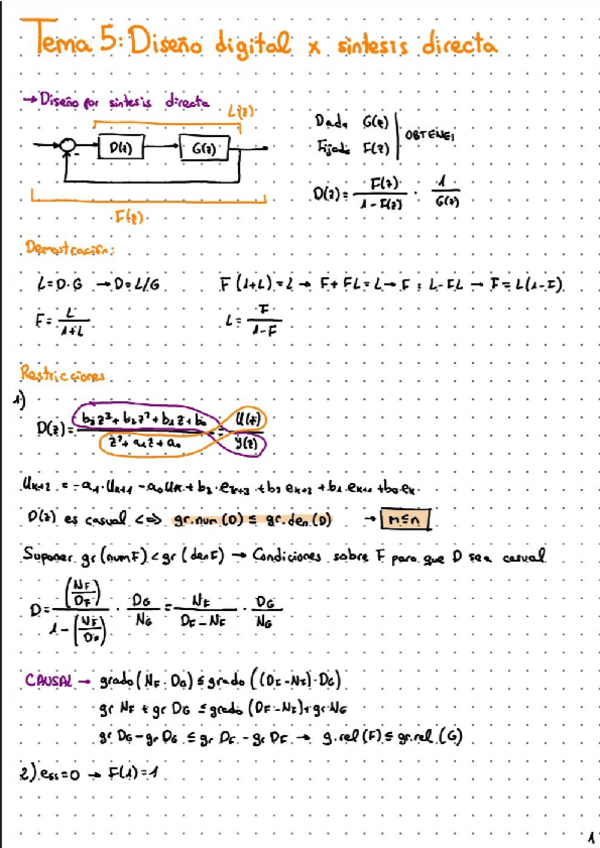 Tema 5: Diseño digital x sintesis directa
→ Diseño por sintesis directa
L(z)
D(z) G(z)
-
F(z)
Dada G(z)
Fijada F(z)
OBTENEI
D(z) = F(z) / 1 - F(z) · 1 / G(z)
Demostración:
L = D·G → D = L/G
F = L / 1+L
F (1+L) = L → F + FL = L → F = L - FL → F = L(1-F)
L = F / 1-F
Restricciones
1)
D(z) = b3 z³ + b2 z² + b1 z + b0 / z² + a1 z + a0 = U(z) / y(z)
Uk+2 = -a1·Uk+1 - a0 Uk + b3·ek+3 + b2 ek+2 + b1·ek+1 + b0 ek
D(z) es casual <=> gr.num(D) ≤ gr.den(D) → m≤n
Suponer gr(numF) < gr(denF) → Condiciones sobre F para que D sea casual
D = (NF/DF) / 1 - (NF/DF) · DG / NG = NF / DF - NF · DG / NG
CAUSAL → grado(NF·DG) ≤ grado((DF-NF)·DG)
gr NF + gr DG ≤ grado(DF-NF) + gr NG
gr DG - gr DG ≤ gr DF - gr DF → g.rel(F) ≤ gr.rel(G)
2) ess = 0 → F(1) = 1
1